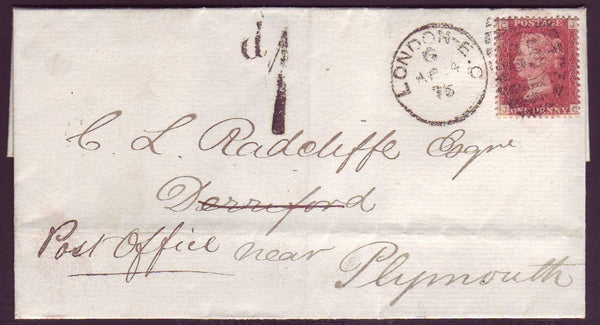 d/1
LONDON-E.C
G
AP 4
75
POSTAGE
ONE PENNY
C. L. Radcliffe Esqre
Derriford
Post Office near
Plymouth